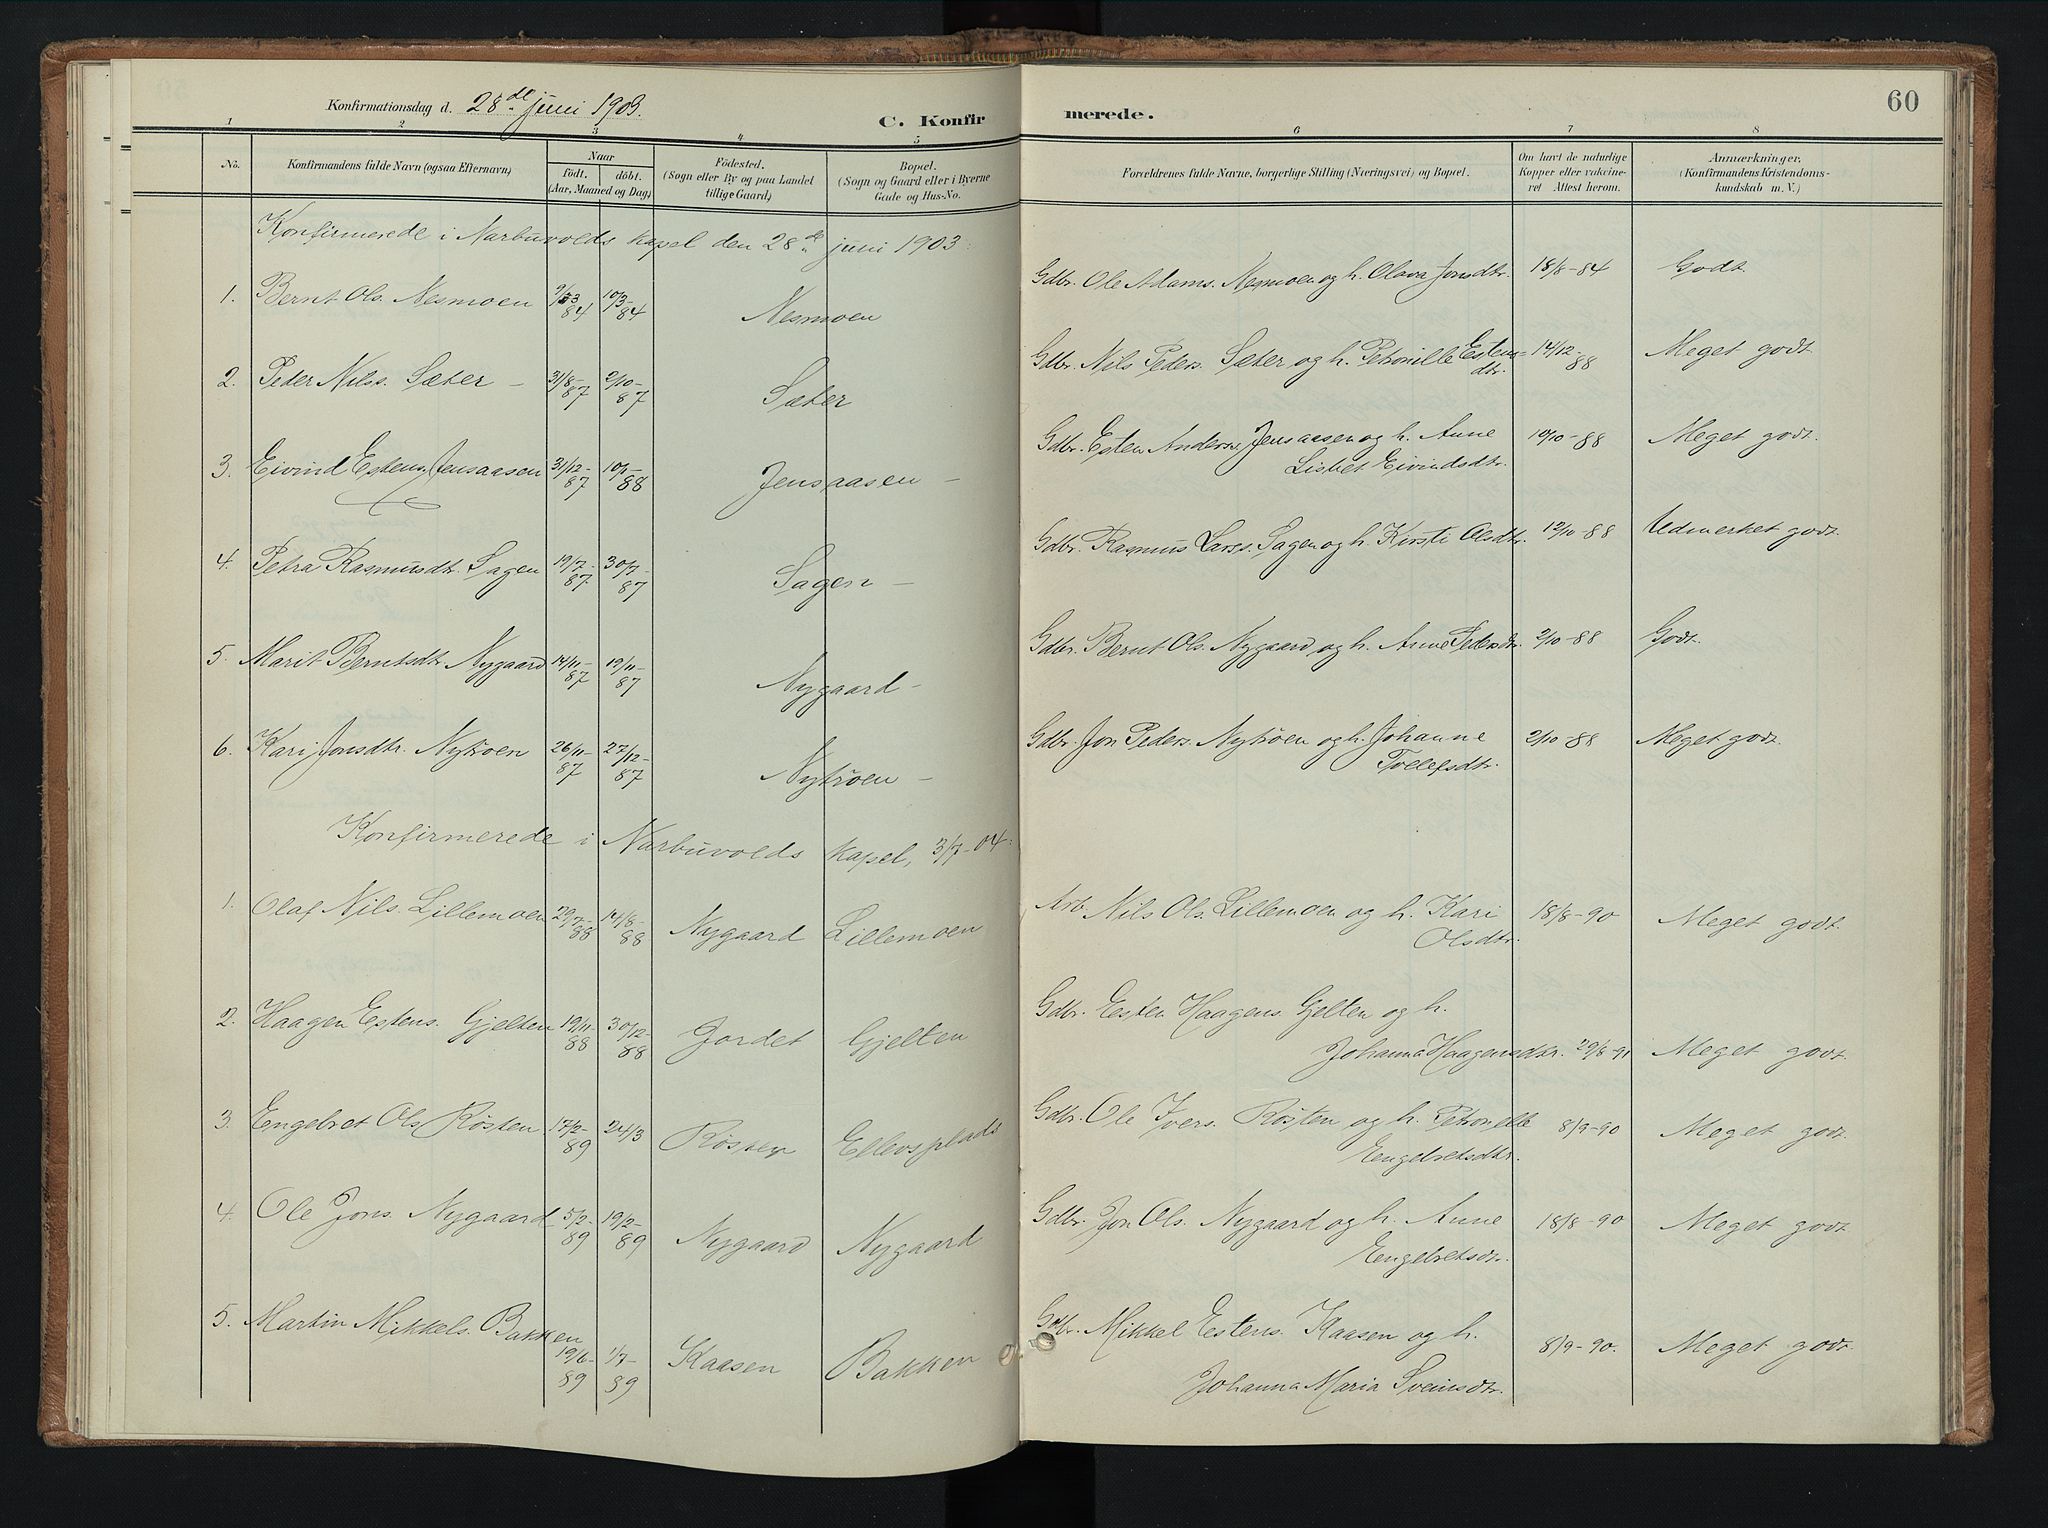 Konfirmationsdag d. 28de juni 1903.
C. Konfirmerede.
60
1 2 3 4 5 6 7 8
No.
Konfirmandens fulde Navn (ogsaa Efternavn)
Naar
födt. döbt.
(Aar, Maaned og Dag)
Födested.
(Sogn eller By og paa Landet
tillige Gaard)
Bopæl.
(Sogn og Gaard eller i Byerne
Gade og Hus-No.
Forældrenes fulde Navne, borgerlige Stilling (Næringsvei) og Bopæl.
Om havt de naturlige
Kopper eller vakcine-
ret Attest herom.
Anmærkninger,
(Konfirmandens Kristendoms-
kundskab m. V.)
Konfirmerede i Narbuvolds kapel den 28de juni 1903:
1. Bernt Ols. Nesmoen 10/3-84 Nesmoen Gdbr. Ole Adams. Nesmoen og h. Olava Jonsdtr. 18/8-84 Godt.
2. Peder Nilss. Sæter - 31/8-87 2/10-87 Sæter Gdbr. Nils Peders. Sæter og h. Petronille Estens-
dtr. 14/12-88 Meget godt.
3. Eivind Estens. Jensaasen 31/12-87 10/1-88 Jensaasen - Gdbr. Esten Anders. Jensaasen og h. Anne
Lisbet Eivindsdtr. 10/10-88 Meget godt.
4. Petra Rasmusdtr. Sagen 19/7-87 30/7-87 Sagen - Gdbr. Rasmus Larss. Sagen og h. Kirsti Olsdtr. 12/10-88 Udmerket godt.
5. Marit Berntsdtr. Nygaard 14/11-87 19/11-87 Nygaard - Gdbr. Bernt Ols. Nygaard og h. Anne Pedersdtr. 2/10-88 Godt.
6. Kari Jonsdtr. Nytrøen 26/11-87 27/12-87 Nytrøen - Gdbr. Jon Peders. Nytrøen og h. Johanne
Tollefsdtr. 2/10-88 Meget godt.
Konfirmerede i Narbuvolds kapel, 3/7-04:
1. Olaf Nils. Lillemoen 29/7-88 14/8-88 Nygaard Lillemoen Arb. Nils Ols. Lillemoen og h. Kari
Olsdtr. 18/8-90 Meget godt.
2. Haagen Estens. Gjelten 19/11-88 30/12-88 Jordet Gjelten Gdbr. Esten Haagens. Gjelten og h.
Johanna Haagensdtr. 29/8-91 Meget godt.
3. Engebret Ols. Røsten 17/2-89 24/3 Røsten Ellevsplads Gdbr. Ole Ivers. Røsten og h. Petronelle
Engebretsdtr. 8/9-90 Meget godt.
4. Ole Jons. Nygaard 5/2-89 19/2-89 Nygaard Nygaard Gdbr. Jon Ols. Nygaard og h. Anne
Engebretsdtr. 18/8-90 Meget godt.
5. Martin Mikkels. Bakken 19/6-89 1/7-89 Kaasen Bakken Gdbr. Mikkel Estens. Kaasen og h.
Johanna Maria Svensdtr. 8/9-90. Meget godt.